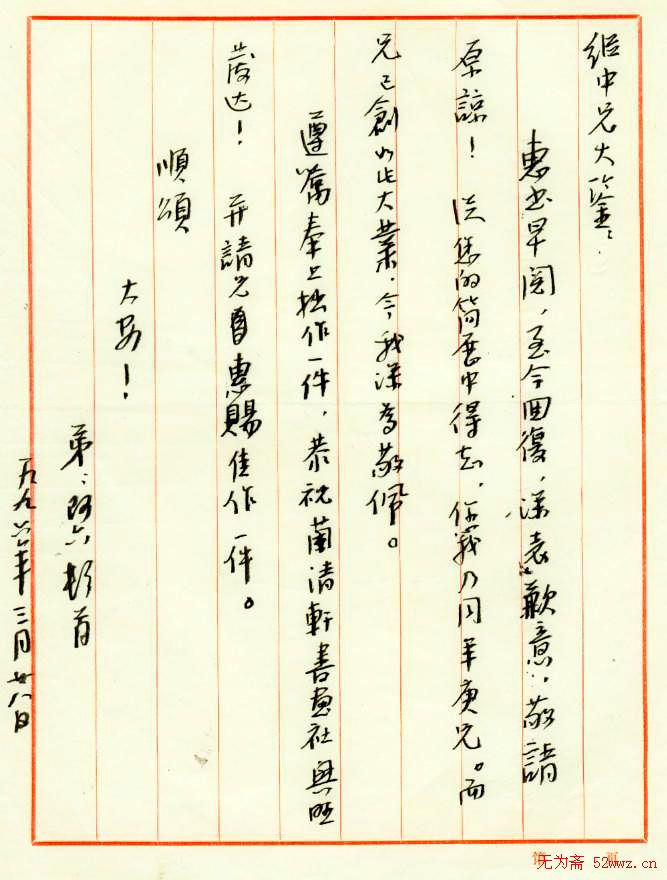 继中兄大鉴：
惠书早阅，至今回復，深表歉意，敬請
原諒！ 从您的简历中得知，你我乃同年庚兄。而
兄已創如此大業，令我深為敬佩。
遵嘱奉上拙作一件，恭祝蘭清軒書画社興旺
發达！ 并請兄惠賜佳作一件。
順頌
大安！
弟：阿六 頓首
一九九六年三月廿八日
第 页
无为斋 52wwz.cn